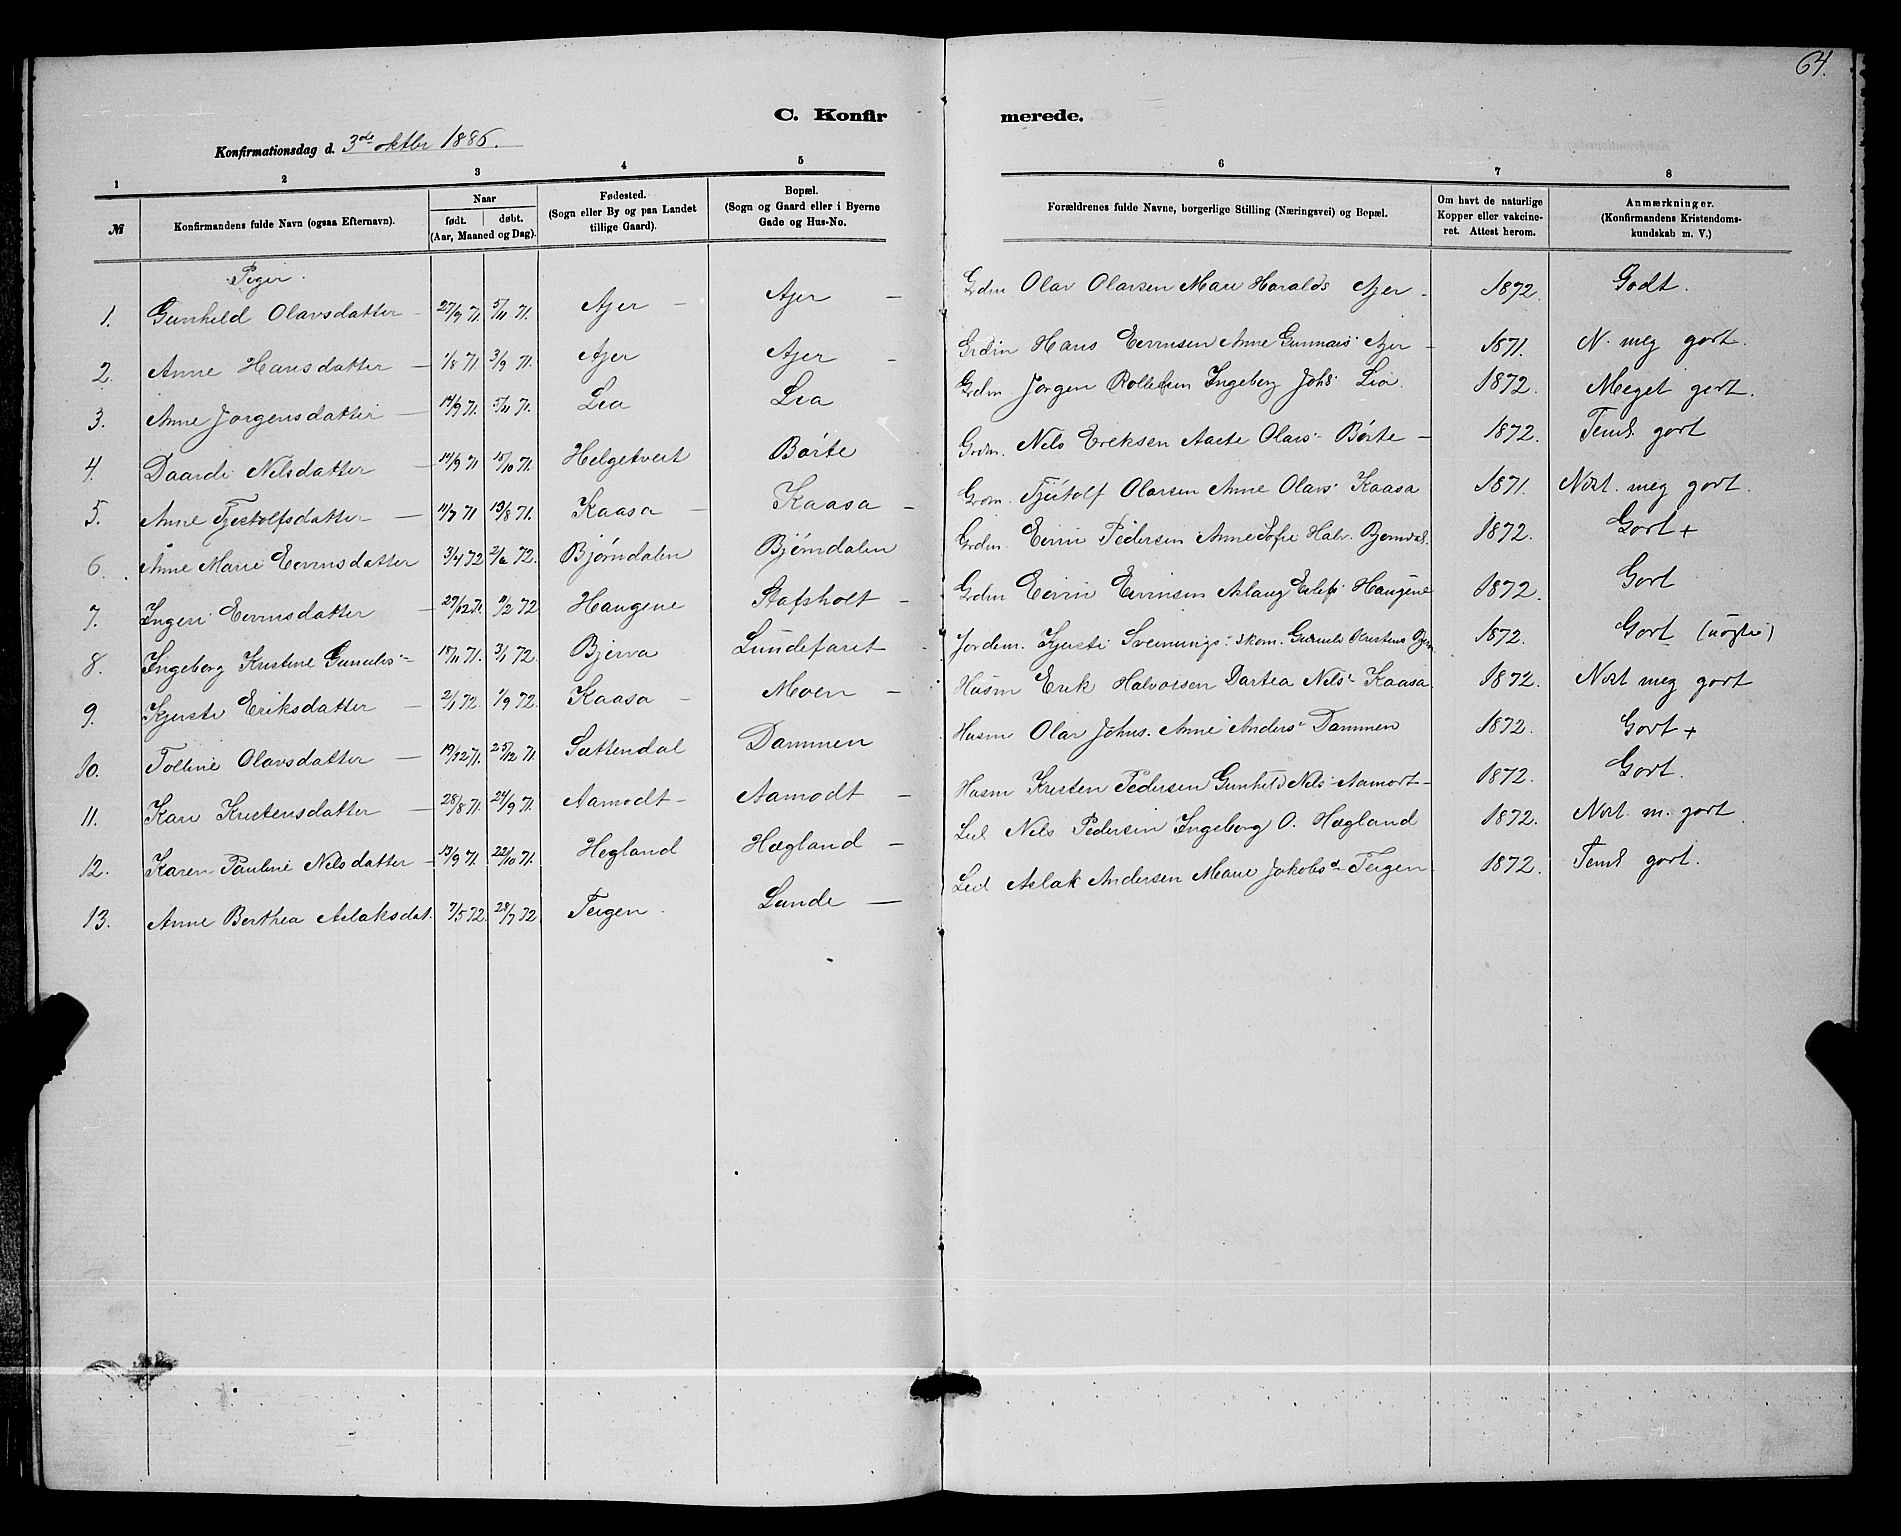 64.
C. Konfirmerede.
Konfirmationsdag d. 3de oktbr 1886.
1 2 3 4 5 6 7 8
№ Konfirmandens fulde Navn (ogsaa Efternavn). Naar født. døbt. (Aar, Maaned og Dag). Fødested. (Sogn eller By og paa Landet tillige Gaard). Bopæl. (Sogn og Gaard eller i Byerne Gade og Hus-No. Forældrenes fulde Navne, borgerlige Stilling (Næringsvei) og Bopæl. Om havt de naturlige Kopper eller vakcineret. Attest herom. Anmærkninger. (Konfirmandens Kristendomskundskab m. V.)
Piger.
1. Gunhild Olavsdatter – 27/9 71. 5/11 71. Ajer – Ajer – Grdm Olav Olavsen Mari Haralds Ajer – 1872. Godt.
2. Anne Hansdatter – 1/8 71 3/9 71. Ajer Ajer – Grdm Hans Eevinsen Anne Gunnars Ajer – 1871. N. meg gort.
3. Anne Jorgensdatter – 14/9 71. 5/11 71. Lia Lia Grdm Jorgen Rollefsen Ingeborg Johs Lia. 1872. Meget gort.
4. Daardi Nilsdatter – 14/9 71 15/10 71. Helgetveit Børte Grdm. Nels Ereksen Aaste Olavs Børte – 1872. Teml. gort
5. Anne Tjostolfsdatter – 11/7 71 13/8 71. Kaasa – Kaasa – Grdm. Tjostolf Olavsen Anne Olavs Kaasa 1871. Nost. meg gort.
6. Anne Marie Eevinsdatter 3/4 72 2/6 72. Bjørndalen Bjørndalen Grdm. Eevin Pedersen Anne Sofie Halv. Bjørndal. 1872. Gort +
7. Ingeri Eevinsdatter – 27/12 71 11/2 72 Haugene Stafsholt – Grdm Eevin Eevinsen Aslaug Eilefs Haugene 1872. Gort
8. Ingeborg Kristine Gunuls – 15/11 71. 3/1 72 Bjerva Lundefaret Jordem. Kjersti Sveinungs. Skom. Gunuls Kristens 1872. Gort (uøgte)
9. Kjersti Eriksdatter – 2/1 72. 1/9 72. Kaasa – Moen – Husm Erik Halvorsen Dartea Nels Kaasa 1872. Nost meg gort
10. Tolline Olavsdatter – 19/12 71. 25/12 71. Sættendal Dammen Husm Olav Johns. Anne Anders Dammen 1872. Gort +
11. Kari Kristensdatter – 28/8 71. 24/9 71. Aamodt – Aamodt – Husm Kristen Pedersen Gunhild Nils Aamort – 1872. Gort.
12. Karen Pauline Nilsdatter – 13/9 71. 22/10 71. Hegland Hægland – Leil Nils Pedersen Ingeborg O. Hægland 1872. Nost. m. gort.
13. Anne Berthea Aslaksdat. 7/5 72. 28/7 72 Teigen. Lunde – Leil Aslak Andersen Marie Jakobsd Teigen. 1872. Teml gort.